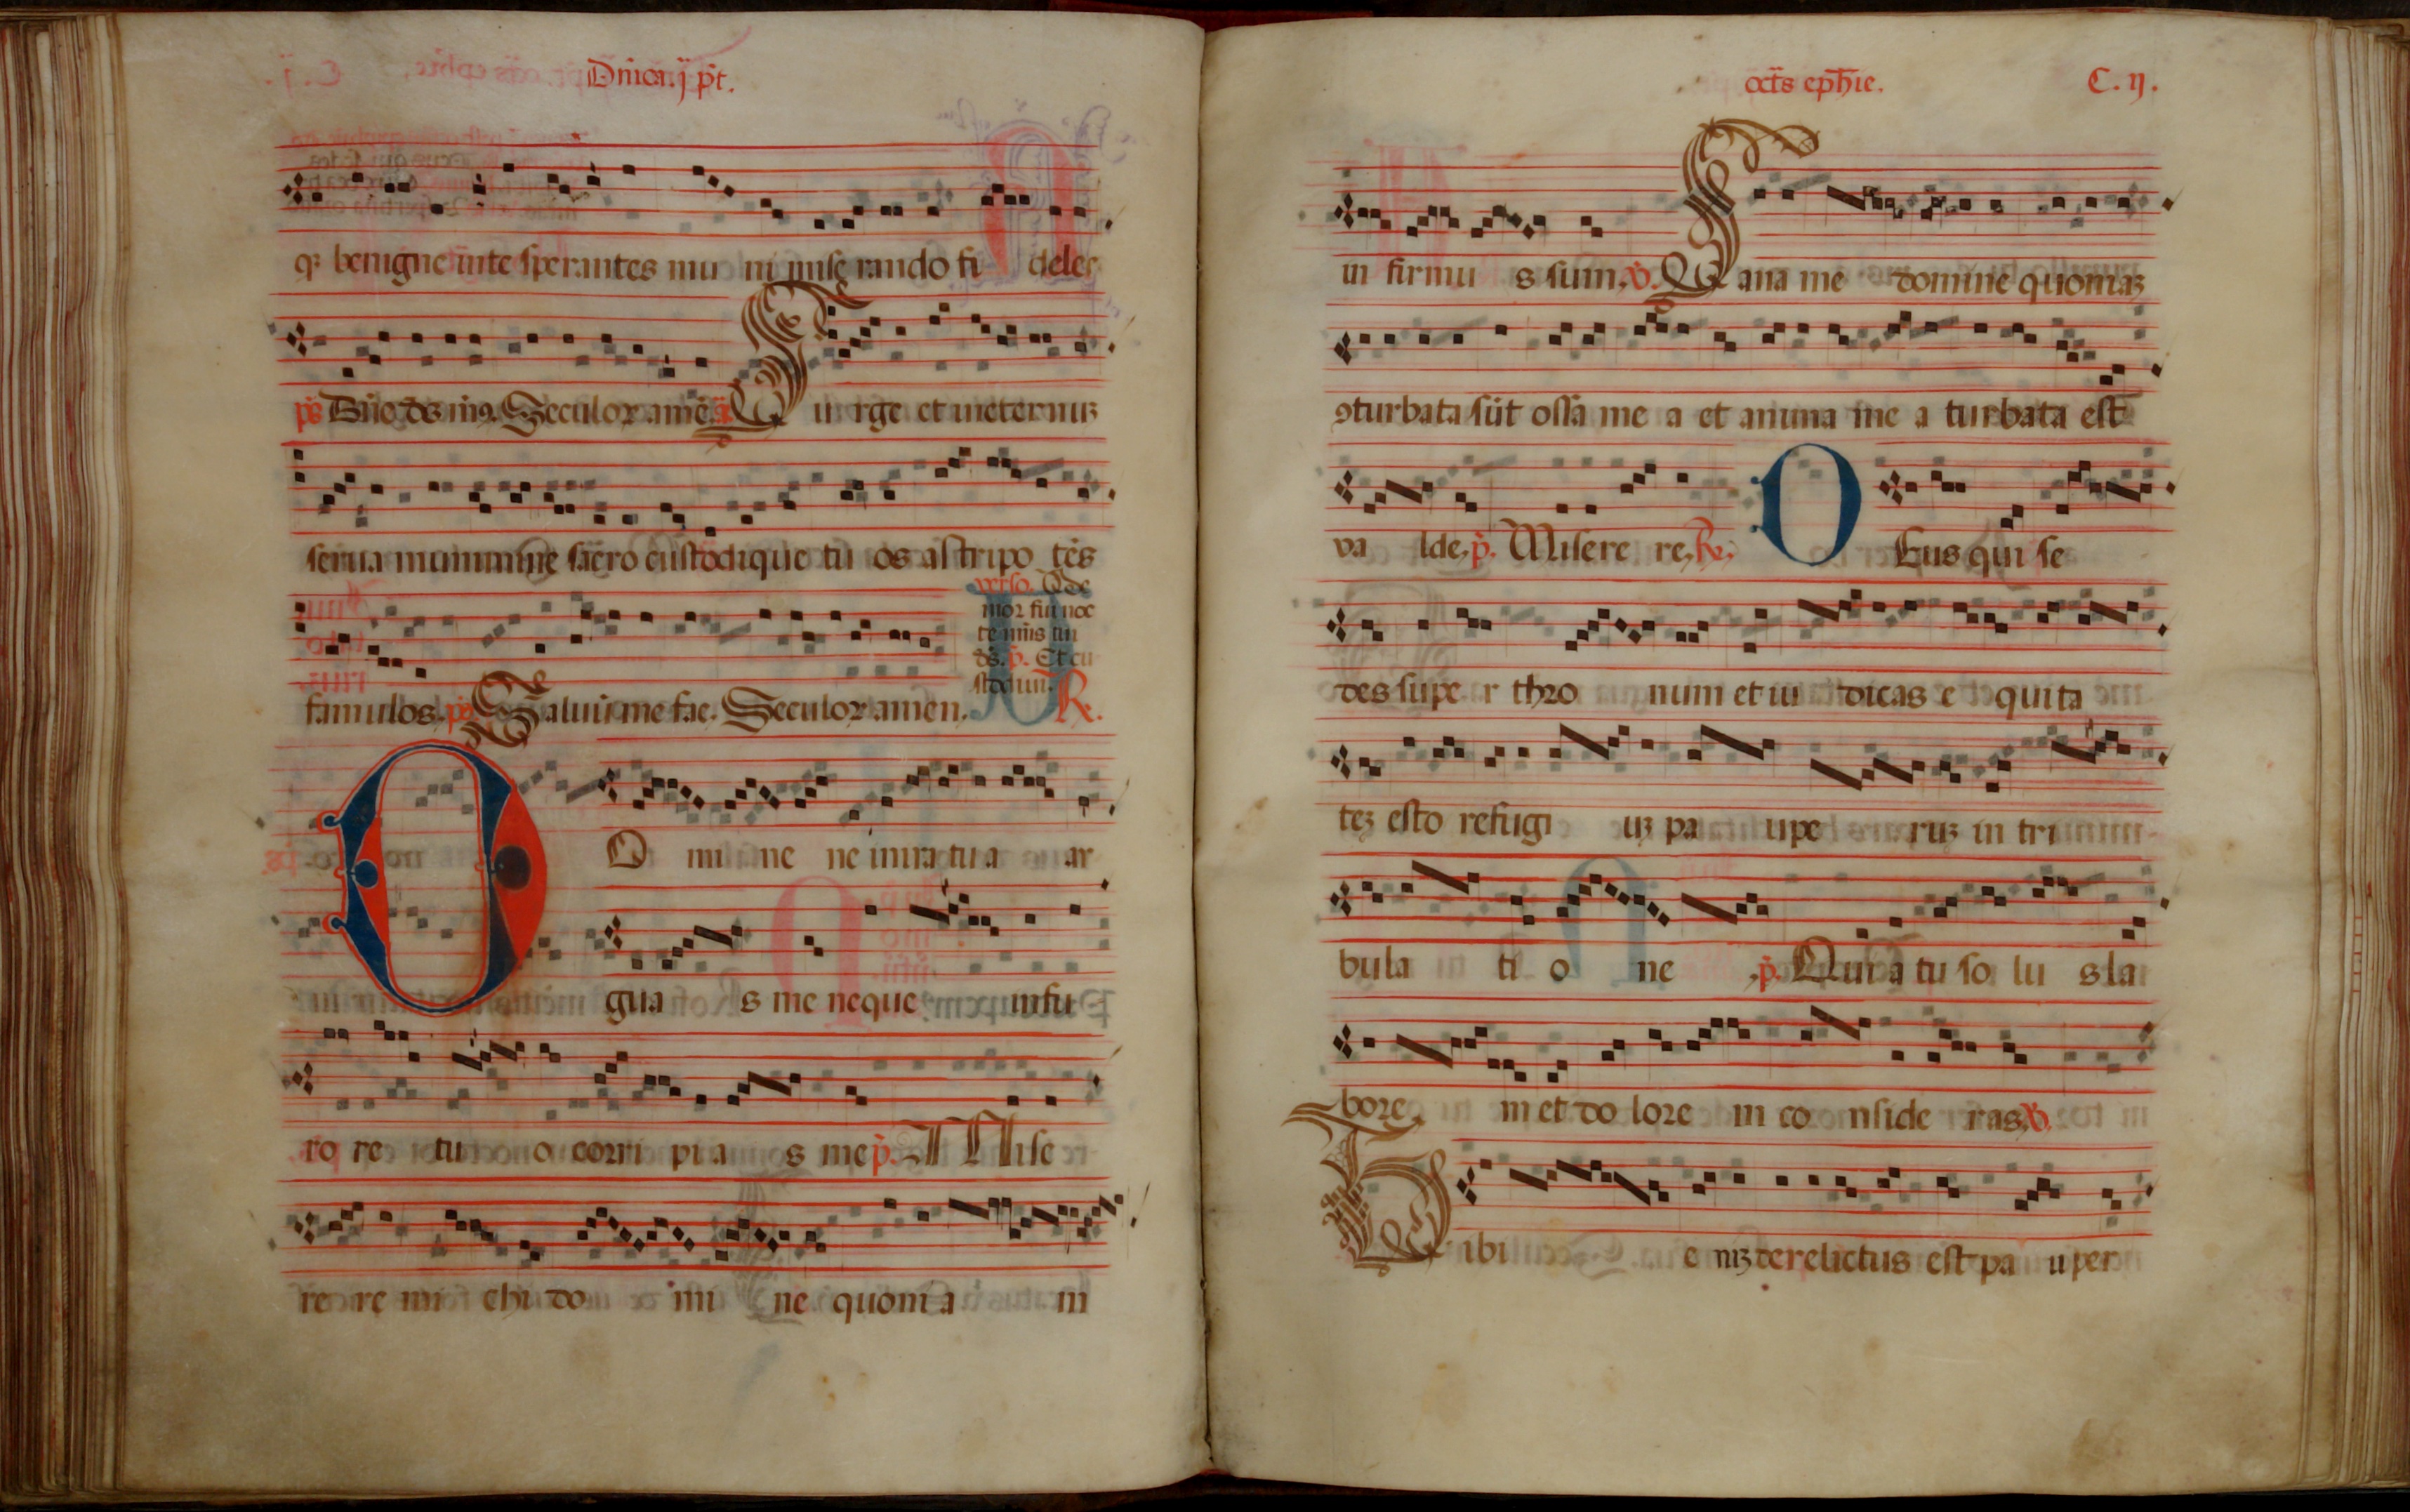 Dnica. ij pt.
qꝫ benigne in te sperantes mu ni mise rando fi deles
ps Dñe ds ms. Seculoꝝ amē. a Su rge et in eternuꝫ
serua munimine sacro custodique tu os astripo tēs
verso. Qde
mor fui noc
te nois tui
ds. p. Et cu
stodiui.
famulos. ps Saluū me fac. Seculoꝝ amen. R.
O mi ne ne in ira tu a ar
gua s me neque in fu
ro re tu o corri pi a s me p. Mise
re re mi chi do mi ne quoni a in
oct̄s eph̄ie. C. ij.
in firmu s sum. v. Sana me domine quoniaꝫ
ꝯturbata sūt ossa me a et anima me a turbata est
va lde. p. Misere re. R. DEus qui se
des supe r thro num et iu dicas e quita
teꝫ esto refugi uꝫ pa upe ruꝫ in tri
bula ti o ne p. Quia tu so lu s la
bore m et do lore m co nside ras. v.
Tibi e niꝫ derelictus est pa uper